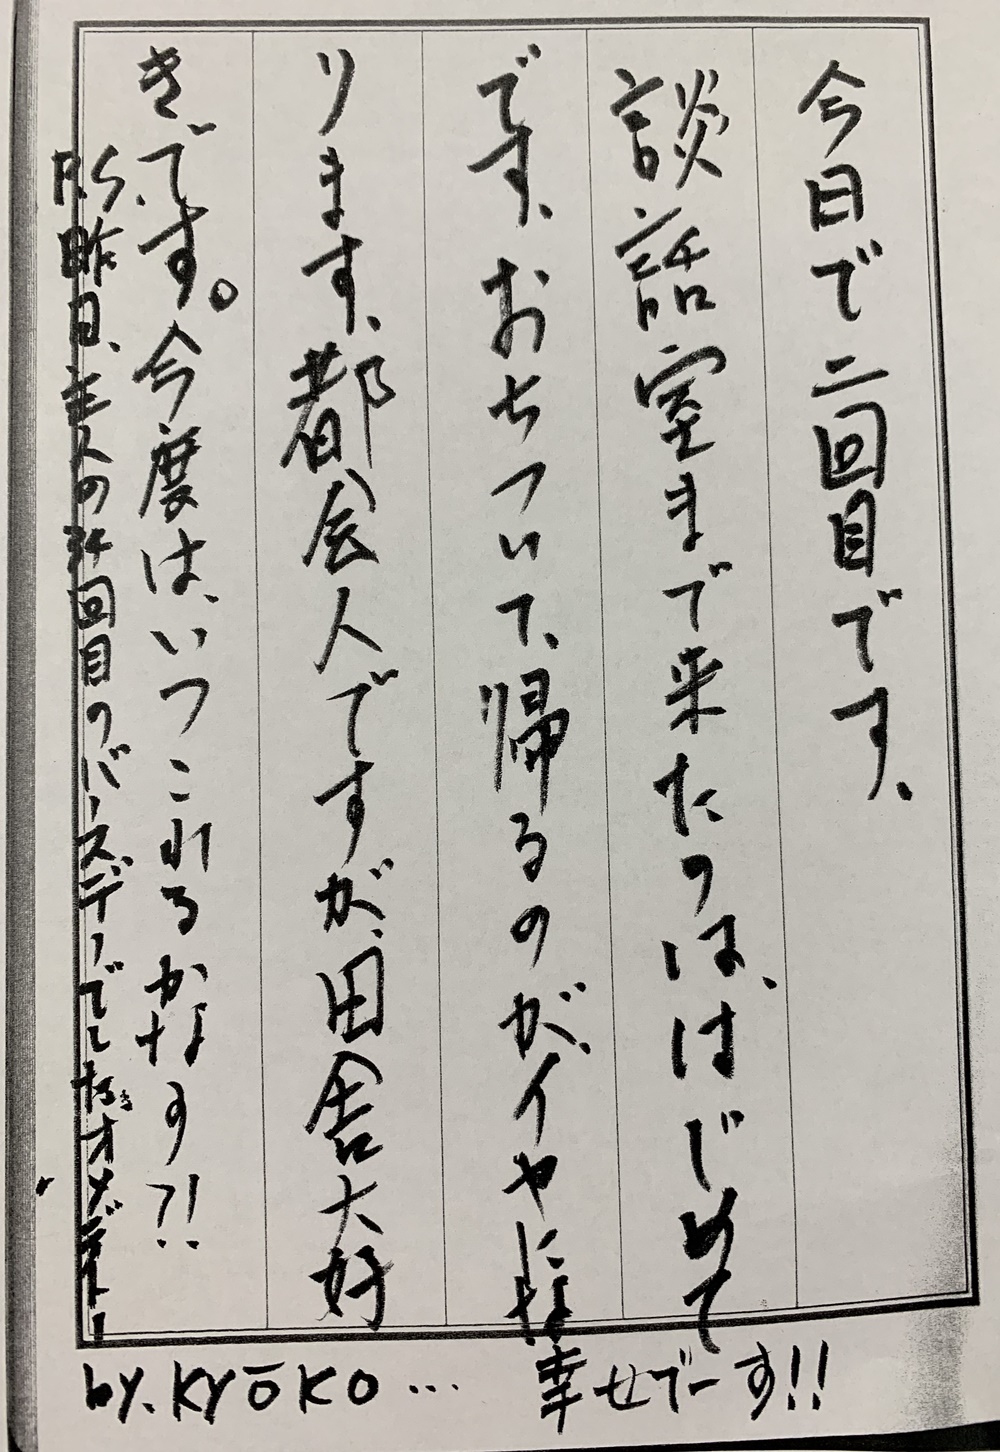 今日で二回目です、
談話室まで来たのは、はじめて
です、おちついて、帰るのが、イヤにな
ります、都会人ですが、田舎大好
きです。今度は、いつこれるかなァ?!
P.S昨日、主人の34回目のバースデーでした オメデトー
by.KYŌKO… 幸せでーす!!